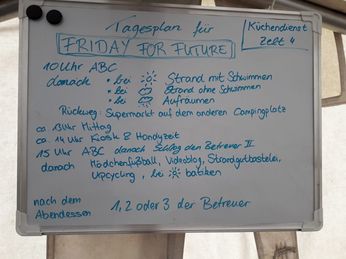 Tagesplan für
FRIDAY FOR FUTURE
Küchendienst
Zelt 4
10 Uhr ABC
danach • bei Strand mit Schwimmen
• bei Strand ohne Schwimmen
• bei Aufräumen
Rückweg: Supermarkt auf dem anderen Campingplatz
ca. 13 Uhr Mittag
ca. 14 Uhr Kiosk & Handyzeit
15 Uhr ABC danach Schlag den Betreuer II
danach Mädchenfußball, Videoblog, Strandgutbastelei,
Upcycling, bei batiken
nach dem
Abendessen 1, 2 oder 3 der Betreuer